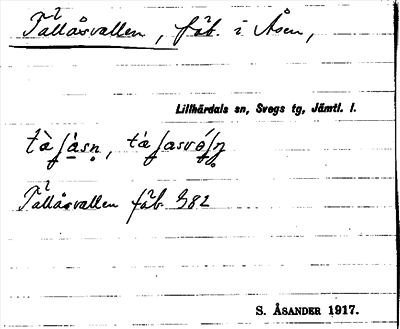 Tallåsvallen, fäb. i Åsen,
Lillhärdals sn, Svegs tg, Jämtl. l.
Tallåsvallen fäb. G82
S. ÅSANDER 1917.